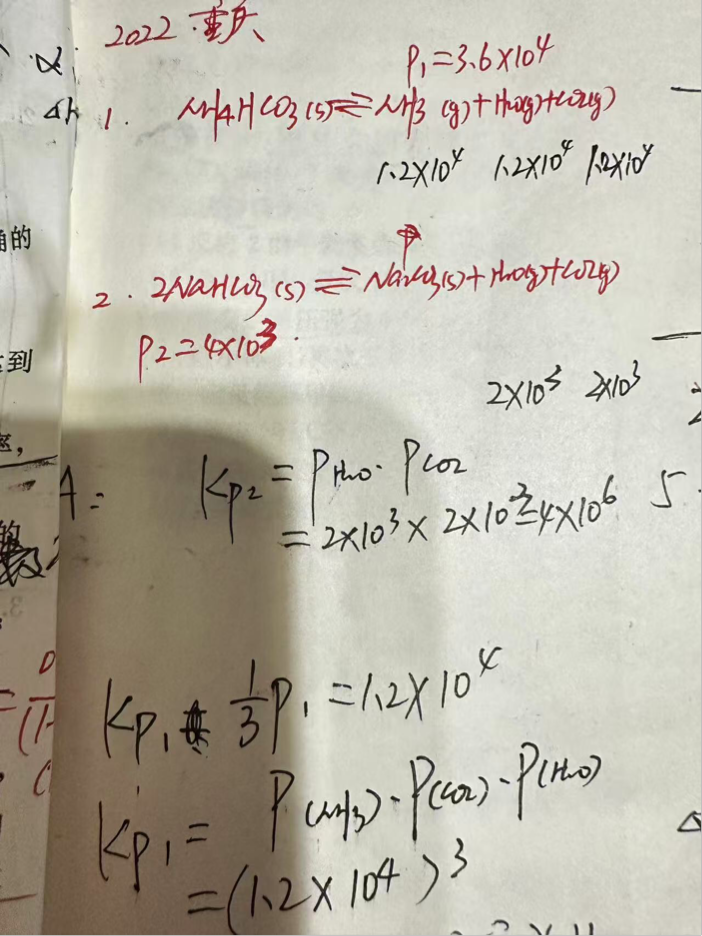 2022·重庆
P₁=3.6×10⁴
1. NH4HCO3(s)⇌NH3(g)+H2O(g)+CO2(g)
1.2×10⁴ 1.2×10⁴ 1.2×10⁴
2. 2NaHCO3(s)⇌Na2CO3(s)+H2O(g)+CO2(g)
P2=4×10³.
2×10³ 2×10³
A: Kp2=PH2O·PCO2
=2×10³×2×10³=4×10⁶ 5.
Kp₁ ⅓P₁=1.2×10⁴
Kp₁=P(NH3)·P(CO2)·P(H2O)
=(1.2×10⁴)³